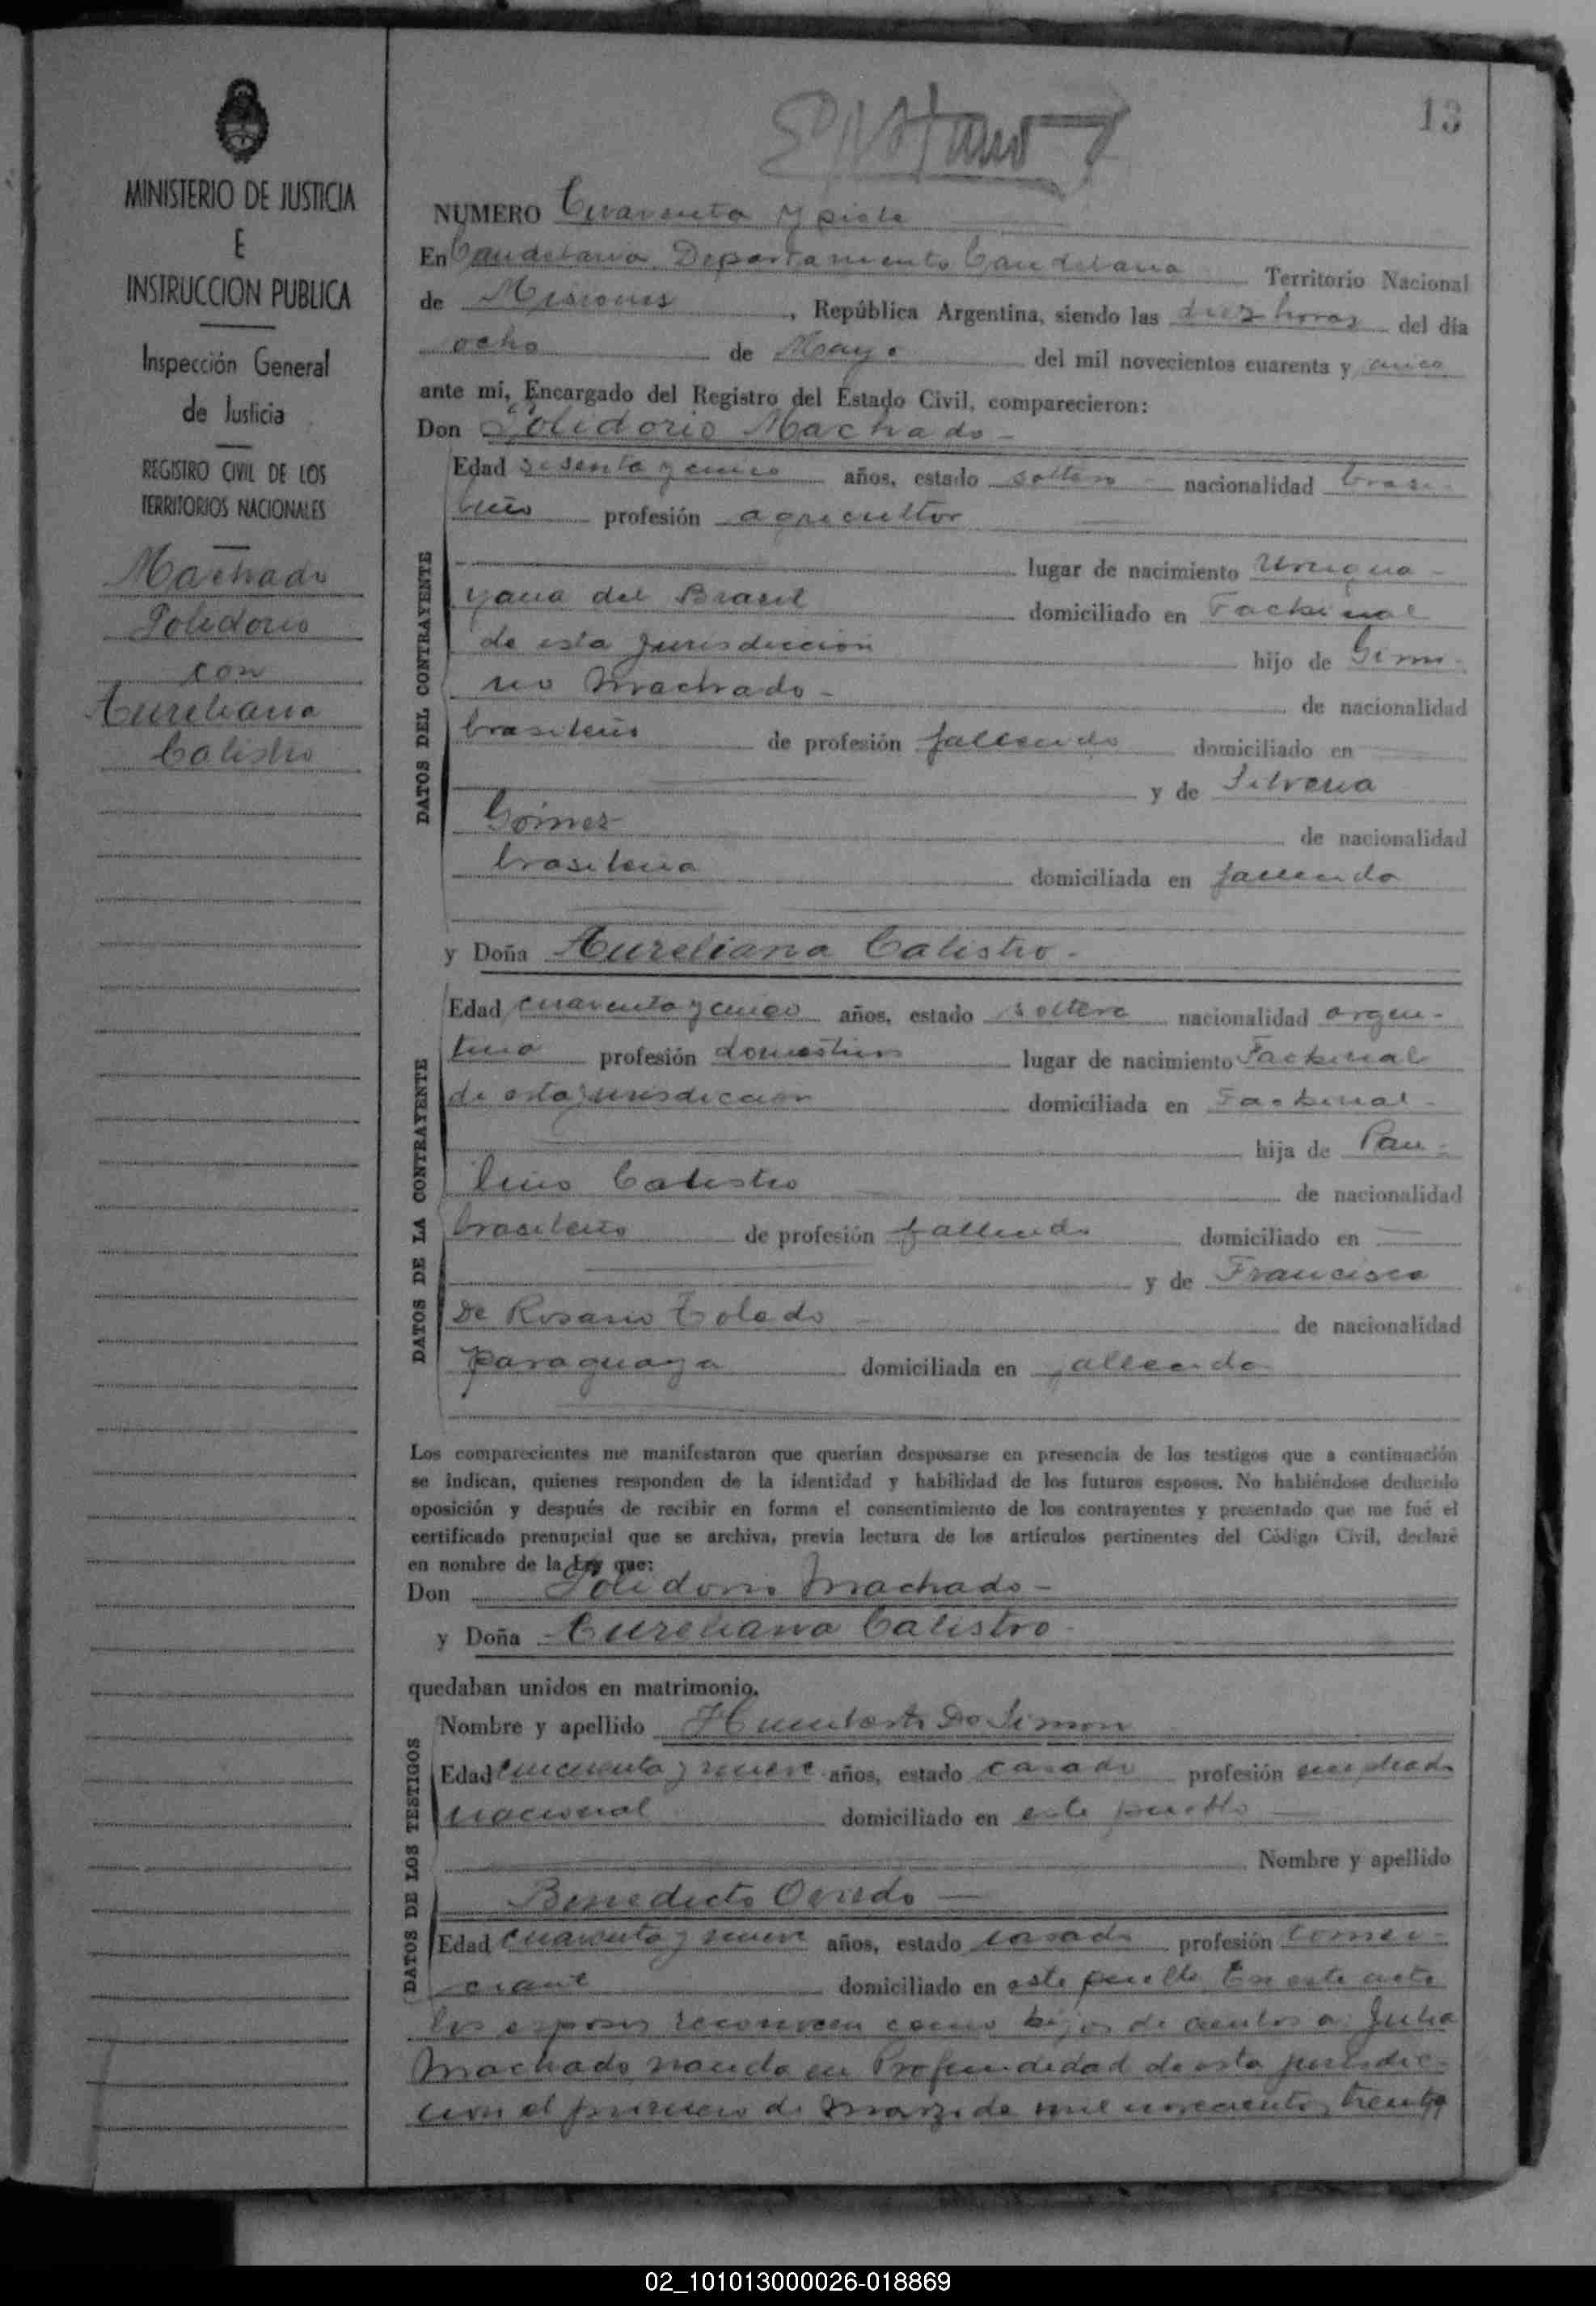 13
MINISTERIO DE JUSTICIA
E
INSTRUCCION PUBLICA
Inspección General
de Justicia
REGISTRO CIVIL DE LOS
TERRITORIOS NACIONALES
Machado
Polidorio
con
Aureliana
Calistro
NUMERO Cuarenta y siete
En Candelaria Departamento Candelaria Territorio Nacional
de Misiones, República Argentina, siendo las diez horas del día
ocho de Mayo del mil novecientos cuarenta y cinco
ante mi, Encargado del Registro del Estado Civil, comparecieron:
Don Polidorio Machado -
DATOS DEL CONTRAYENTE
Edad sesenta y cinco años, estado soltero - nacionalidad brasi-
leño profesión agricultor
lugar de nacimiento Urugua-
yana del Brasil domiciliado en Fachinal
de esta Jurisdicción hijo de Firmi-
no Machado - de nacionalidad
brasileño de profesión fallecido domiciliado en
y de Silveria
Gómez de nacionalidad
brasileña domiciliada en fallecida
y Doña Aureliana Calistro -
DATOS DE LA CONTRAYENTE
Edad cuarenta y cinco años, estado soltera nacionalidad argen-
tina profesión domestica lugar de nacimiento Fachinal
de esta jurisdicción domiciliada en Fachinal -
hija de Pau-
lino Calistro de nacionalidad
brasileño de profesión fallecido domiciliado en
y de Francisca
De Rosario Toledo de nacionalidad
Paraguaya domiciliada en fallecida
Los comparecientes me manifestaron que querían desposarse en presencia de los testigos que a continuación
se indican, quienes responden de la identidad y habilidad de los futuros esposos. No habiéndose deducido
oposición y después de recibir en forma el consentimiento de los contrayentes y presentado que me fué el
certificado prenupcial que se archiva, previa lectura de los artículos pertinentes del Código Civil, declaré
en nombre de la Ley que:
Don Polidorio Machado -
y Doña Aureliana Calistro -
quedaban unidos en matrimonio.
DATOS DE LOS TESTIGOS
Nombre y apellido Humberto De Simon
Edad cincuenta y nueve años, estado casado profesión empleado
nacional domiciliado en este pueblo
Nombre y apellido
Benedicto Oviedo
Edad cuarenta y nueve años, estado casado profesión comer-
ciante domiciliado en este pueblo En este acto
los esposos reconocen como hijos de ambos a: Julia
Machado nacida en Profundidad de esta jurisdic-
cion el primero de Marzo de mil novecientos treinta
02_101013000026-018869